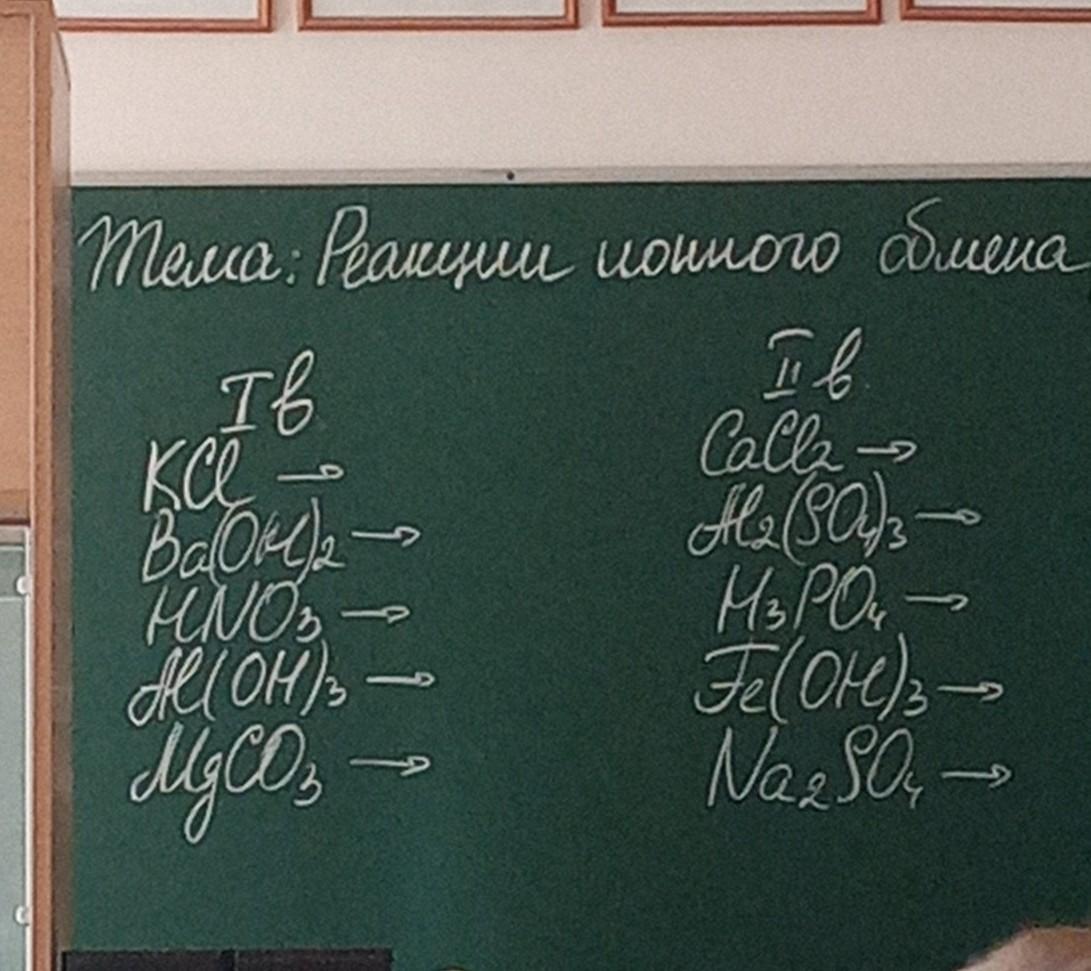 Тема: Реакции ионного обмена
I в
KCl →
Ba(OH)2 →
HNO3 →
Al(OH)3 →
MgCO3 →
II в.
CaCl2 →
Al2(SO4)3 →
H3PO4 →
Fe(OH)3 →
Na2SO4 →